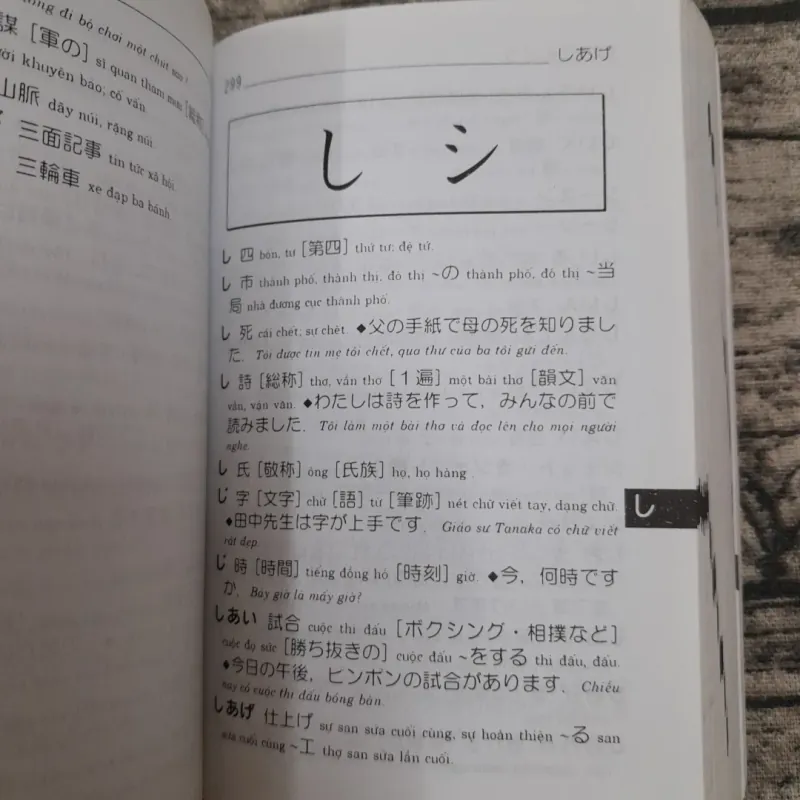 đi bộ chơi một chút
謀 [軍の] sĩ quan tham mưu
khuyên bảo; cố vấn.
山脈 dãy núi, rặng núi.
三面記事 tin tức xã hội.
三輪車 xe đạp ba bánh
299 しあげ
し シ
し 四 bốn, tư [第四] thứ tư; đệ tứ.
し 市 thành phố, thành thị, đô thị ~の thành phố, đô thị ~当
局 nhà đương cục thành phố.
し 死 cái chết; sự chết. ◆父の手紙で母の死を知りまし
た. Tôi được tin mẹ tôi chết, qua thư của ba tôi gửi đến.
し 詩 [総称] thơ, vần thơ [1遍] một bài thơ [韻文] văn
vần, vận văn. ◆わたしは詩を作って, みんなの前で
読みました. Tôi làm một bài thơ và đọc lên cho mọi người
nghe.
し 氏 [敬称] ông [氏族] họ, họ hàng.
じ 字 [文字] chữ [語] từ [筆跡] nét chữ viết tay, dạng chữ.
◆田中先生は字が上手です. Giáo sư Tanaka có chữ viết
rất đẹp.
じ 時 [時間] tiếng đồng hồ [時刻] giờ. ◆今, 何時です
か. Bây giờ là mấy giờ?
し
しあい 試合 cuộc thi đấu [ボクシング・相撲など]
cuộc đọ sức [勝ち抜きの] cuộc đấu ~をする thi đấu, đấu.
◆今日の午後, ピンポンの試合があります. Chiều
nay có cuộc thi đấu bóng bàn.
しあげ 仕上げ sự san sửa cuối cùng, sự hoàn thiện ~る san
sửa cuối cùng ~工 thợ san sửa lần cuối.